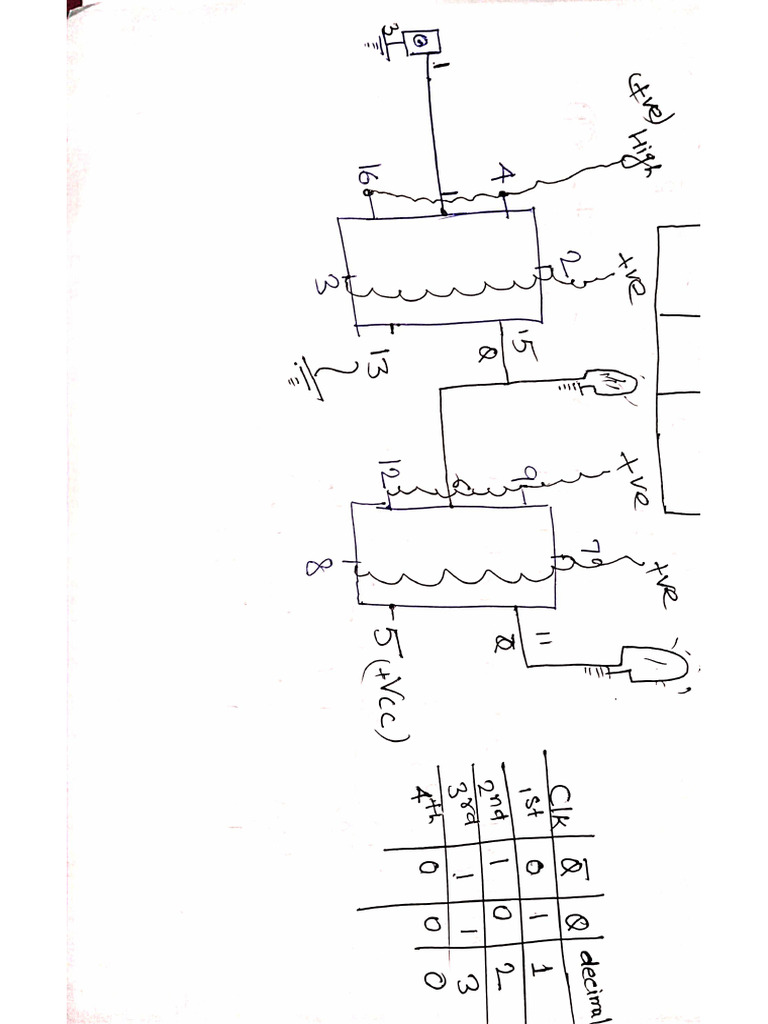 (+ve) High
+ve
+ve
+ve
2
7
4
15
Q
9
11
Q̄
1
1
6
3
16
13
12
5 (+Vcc)
3
8
Clk Q̄ Q decimal
1st 0 1 1
2nd 1 0 2
3rd 1 1 3
4th 0 0 0